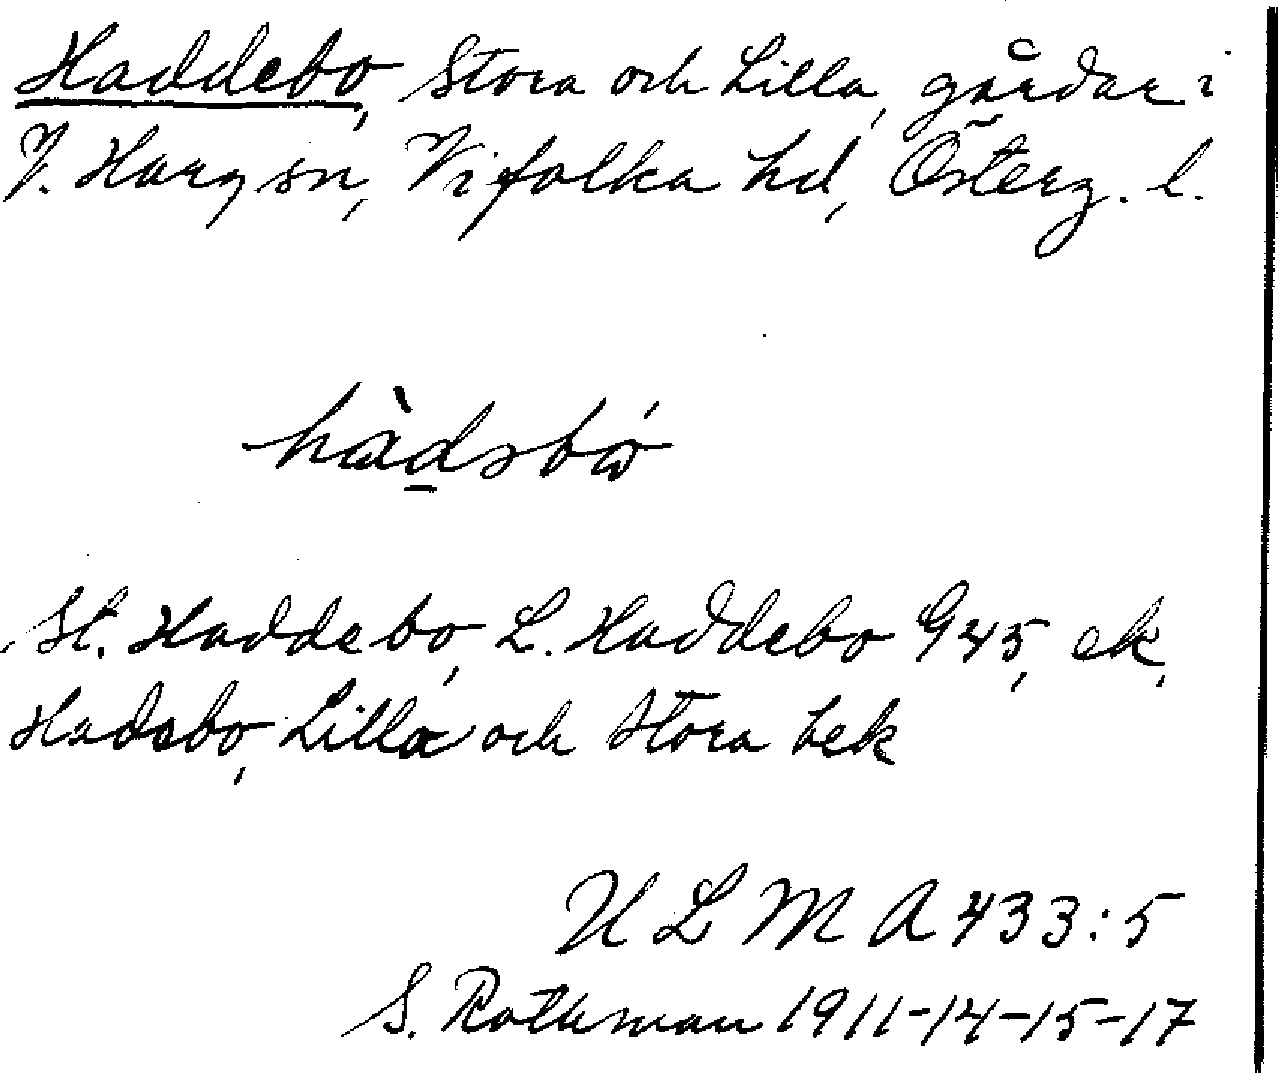 Haddebo, Stora och Lilla, gårdar i
V. Harg sn, Vifolka hd, Österg. l.
hàdsbó
St. Haddebo, L. Haddebo G45, ek,
Hadsbo, Lilla och Stora bek
ULMA 433:5
S. Rothman 1911-14-15-17